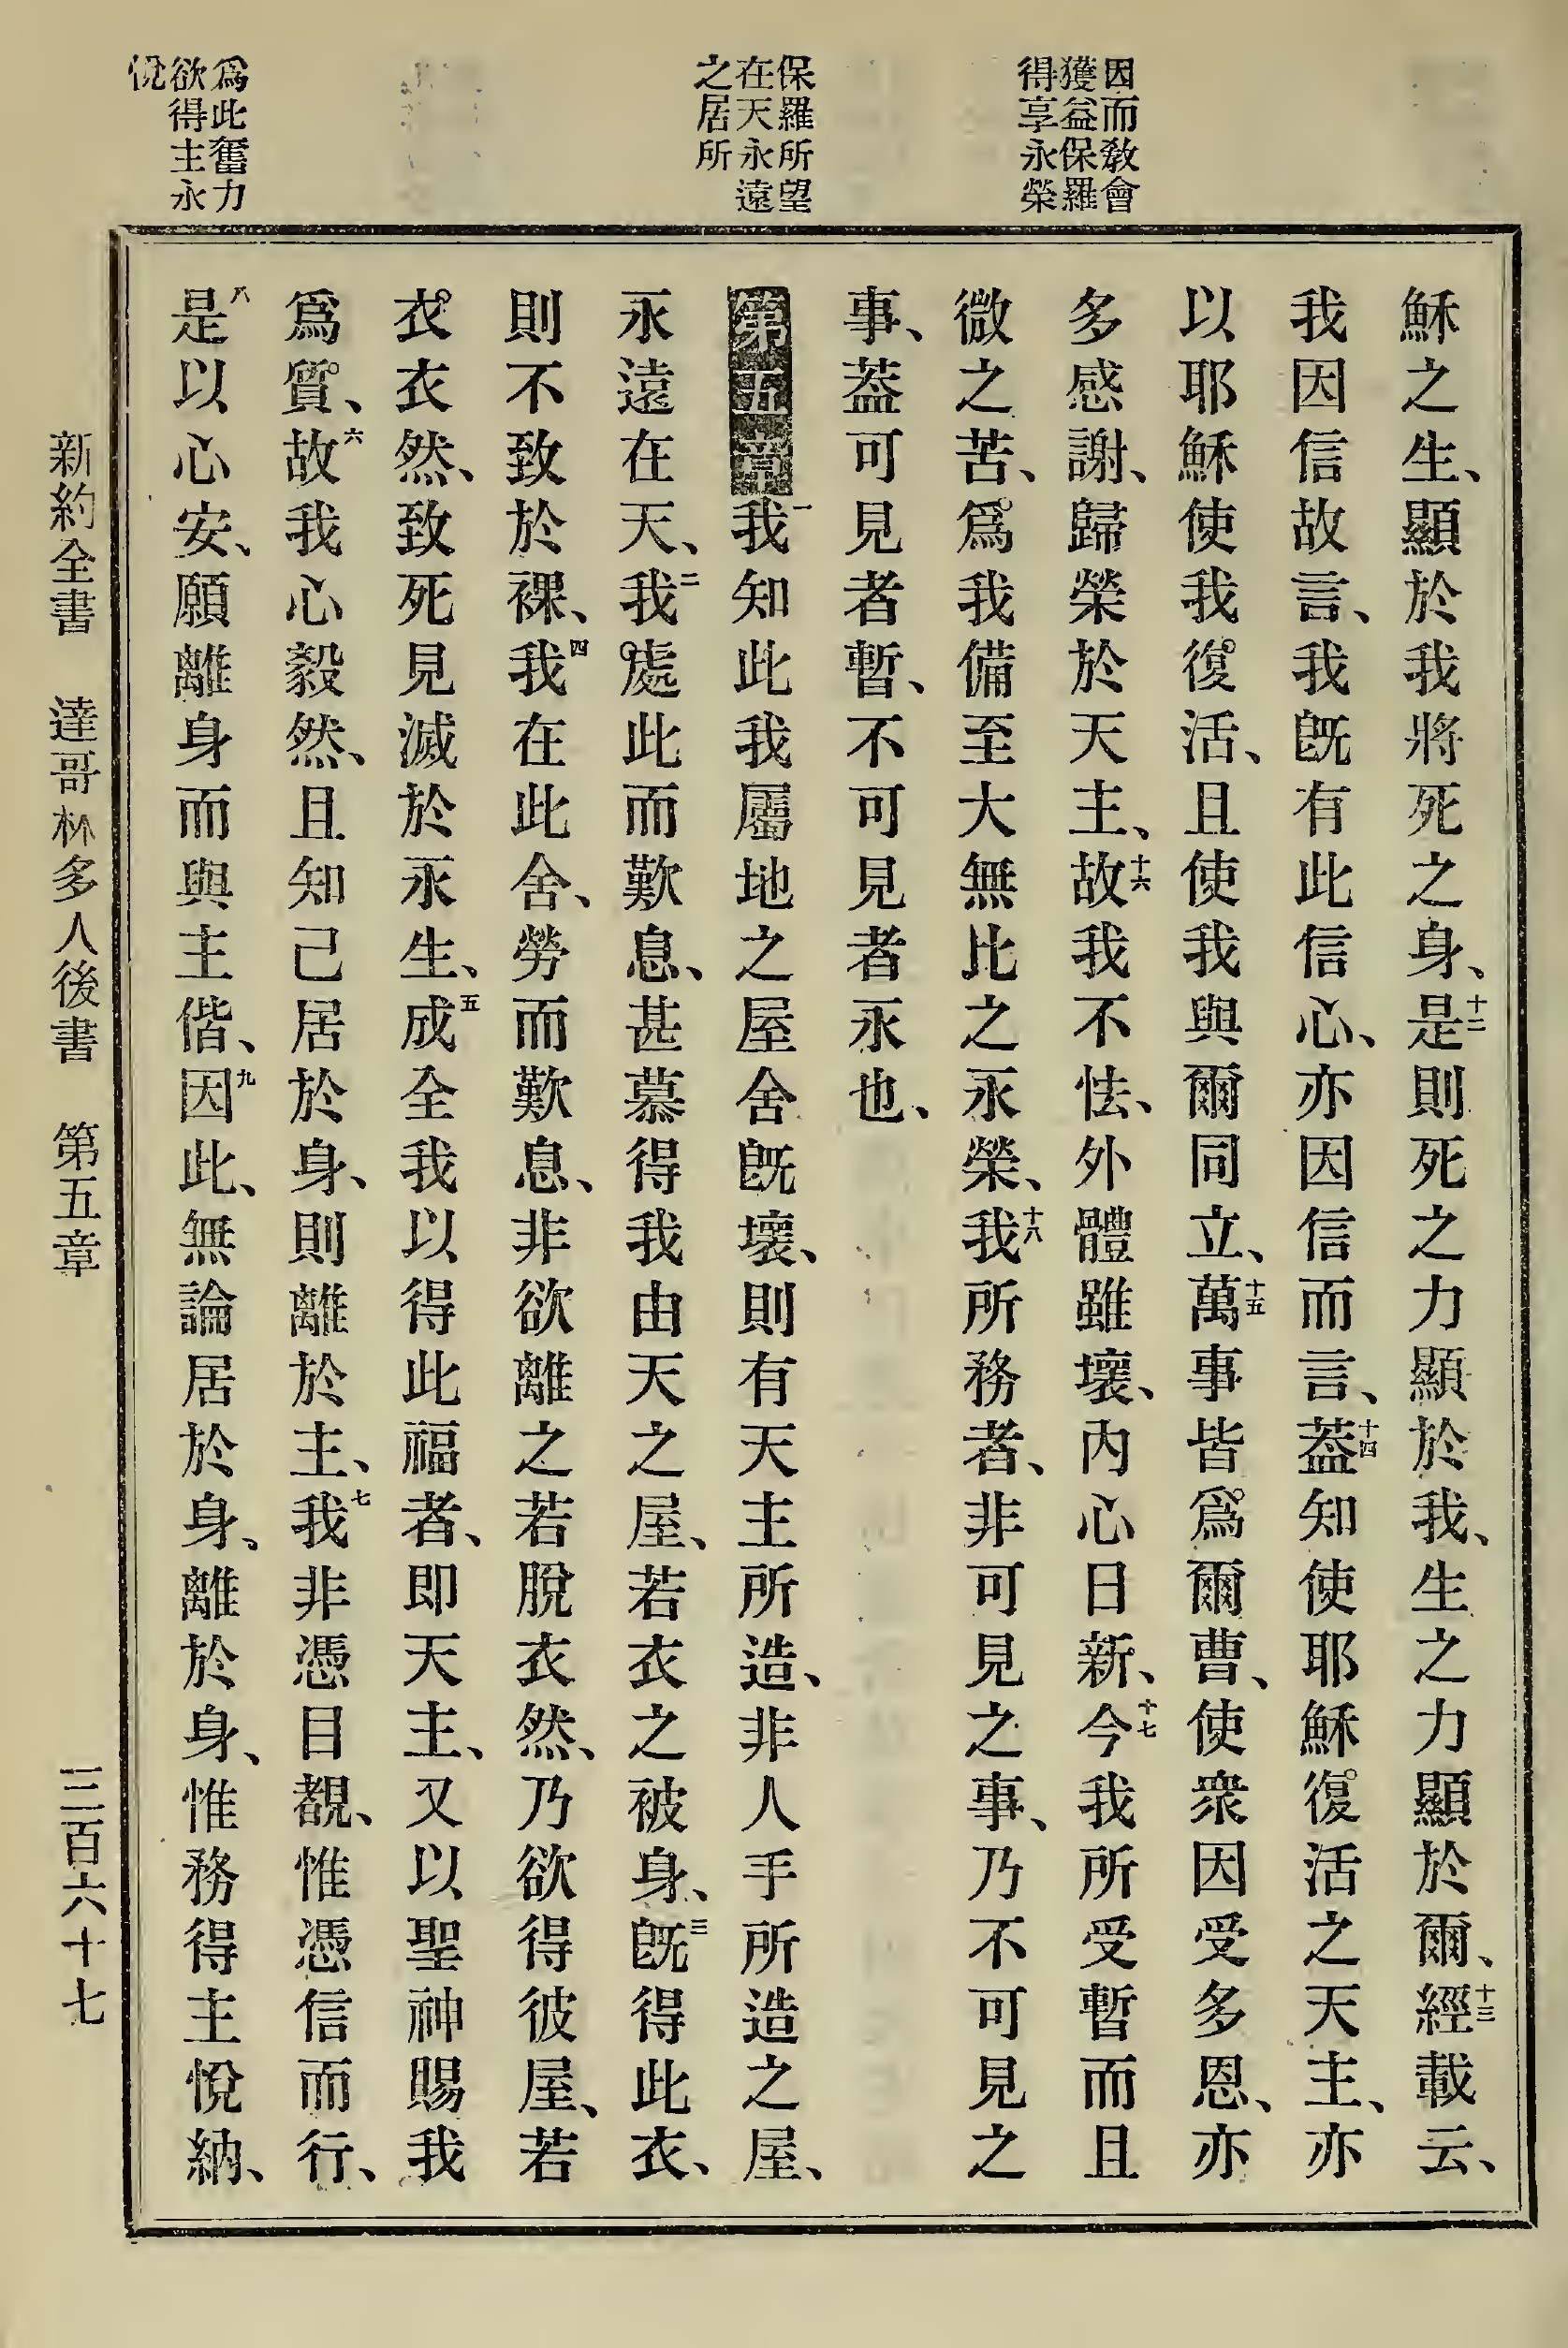 因而敎會
獲益保羅
得享永榮
保羅所望
在天永遠
之居所
爲此奮力
欲得主永
悅
穌之生、顯於我將死之身、十二是則死之力顯於我、生之力顯於爾、十三經載云、
我因信故言、我旣有此信心、亦因信而言、十四葢知使耶穌復活之天主、亦
以耶穌使我復活、且使我與爾同立、十五萬事皆爲爾曹、使衆因受多恩、亦
多感謝、歸榮於天主、十六故我不怯、外體雖壞、內心日新、十七今我所受暫而且
微之苦、爲我備至大無比之永榮、十八我所務者、非可見之事、乃不可見之
事、葢可見者暫、不可見者永也、
第五章一我知此我屬地之屋舍旣壞、則有天主所造、非人手所造之屋、
永遠在天、二我處此而歎息、甚慕得我由天之屋、若衣之被身、三旣得此衣、
則不致於裸、四我在此舍、勞而歎息、非欲離之若脫衣然、乃欲得彼屋、若
衣衣然、致死見滅於永生、五成全我以得此福者、即天主、又以聖神賜我
爲質、六故我心毅然、且知己居於身、則離於主、七我非憑目覩、惟憑信而行、
八是以心安、願離身而與主偕、九因此、無論居於身、離於身、惟務得主悅納、
新約全書 達哥林多人後書 第五章 三百六十七